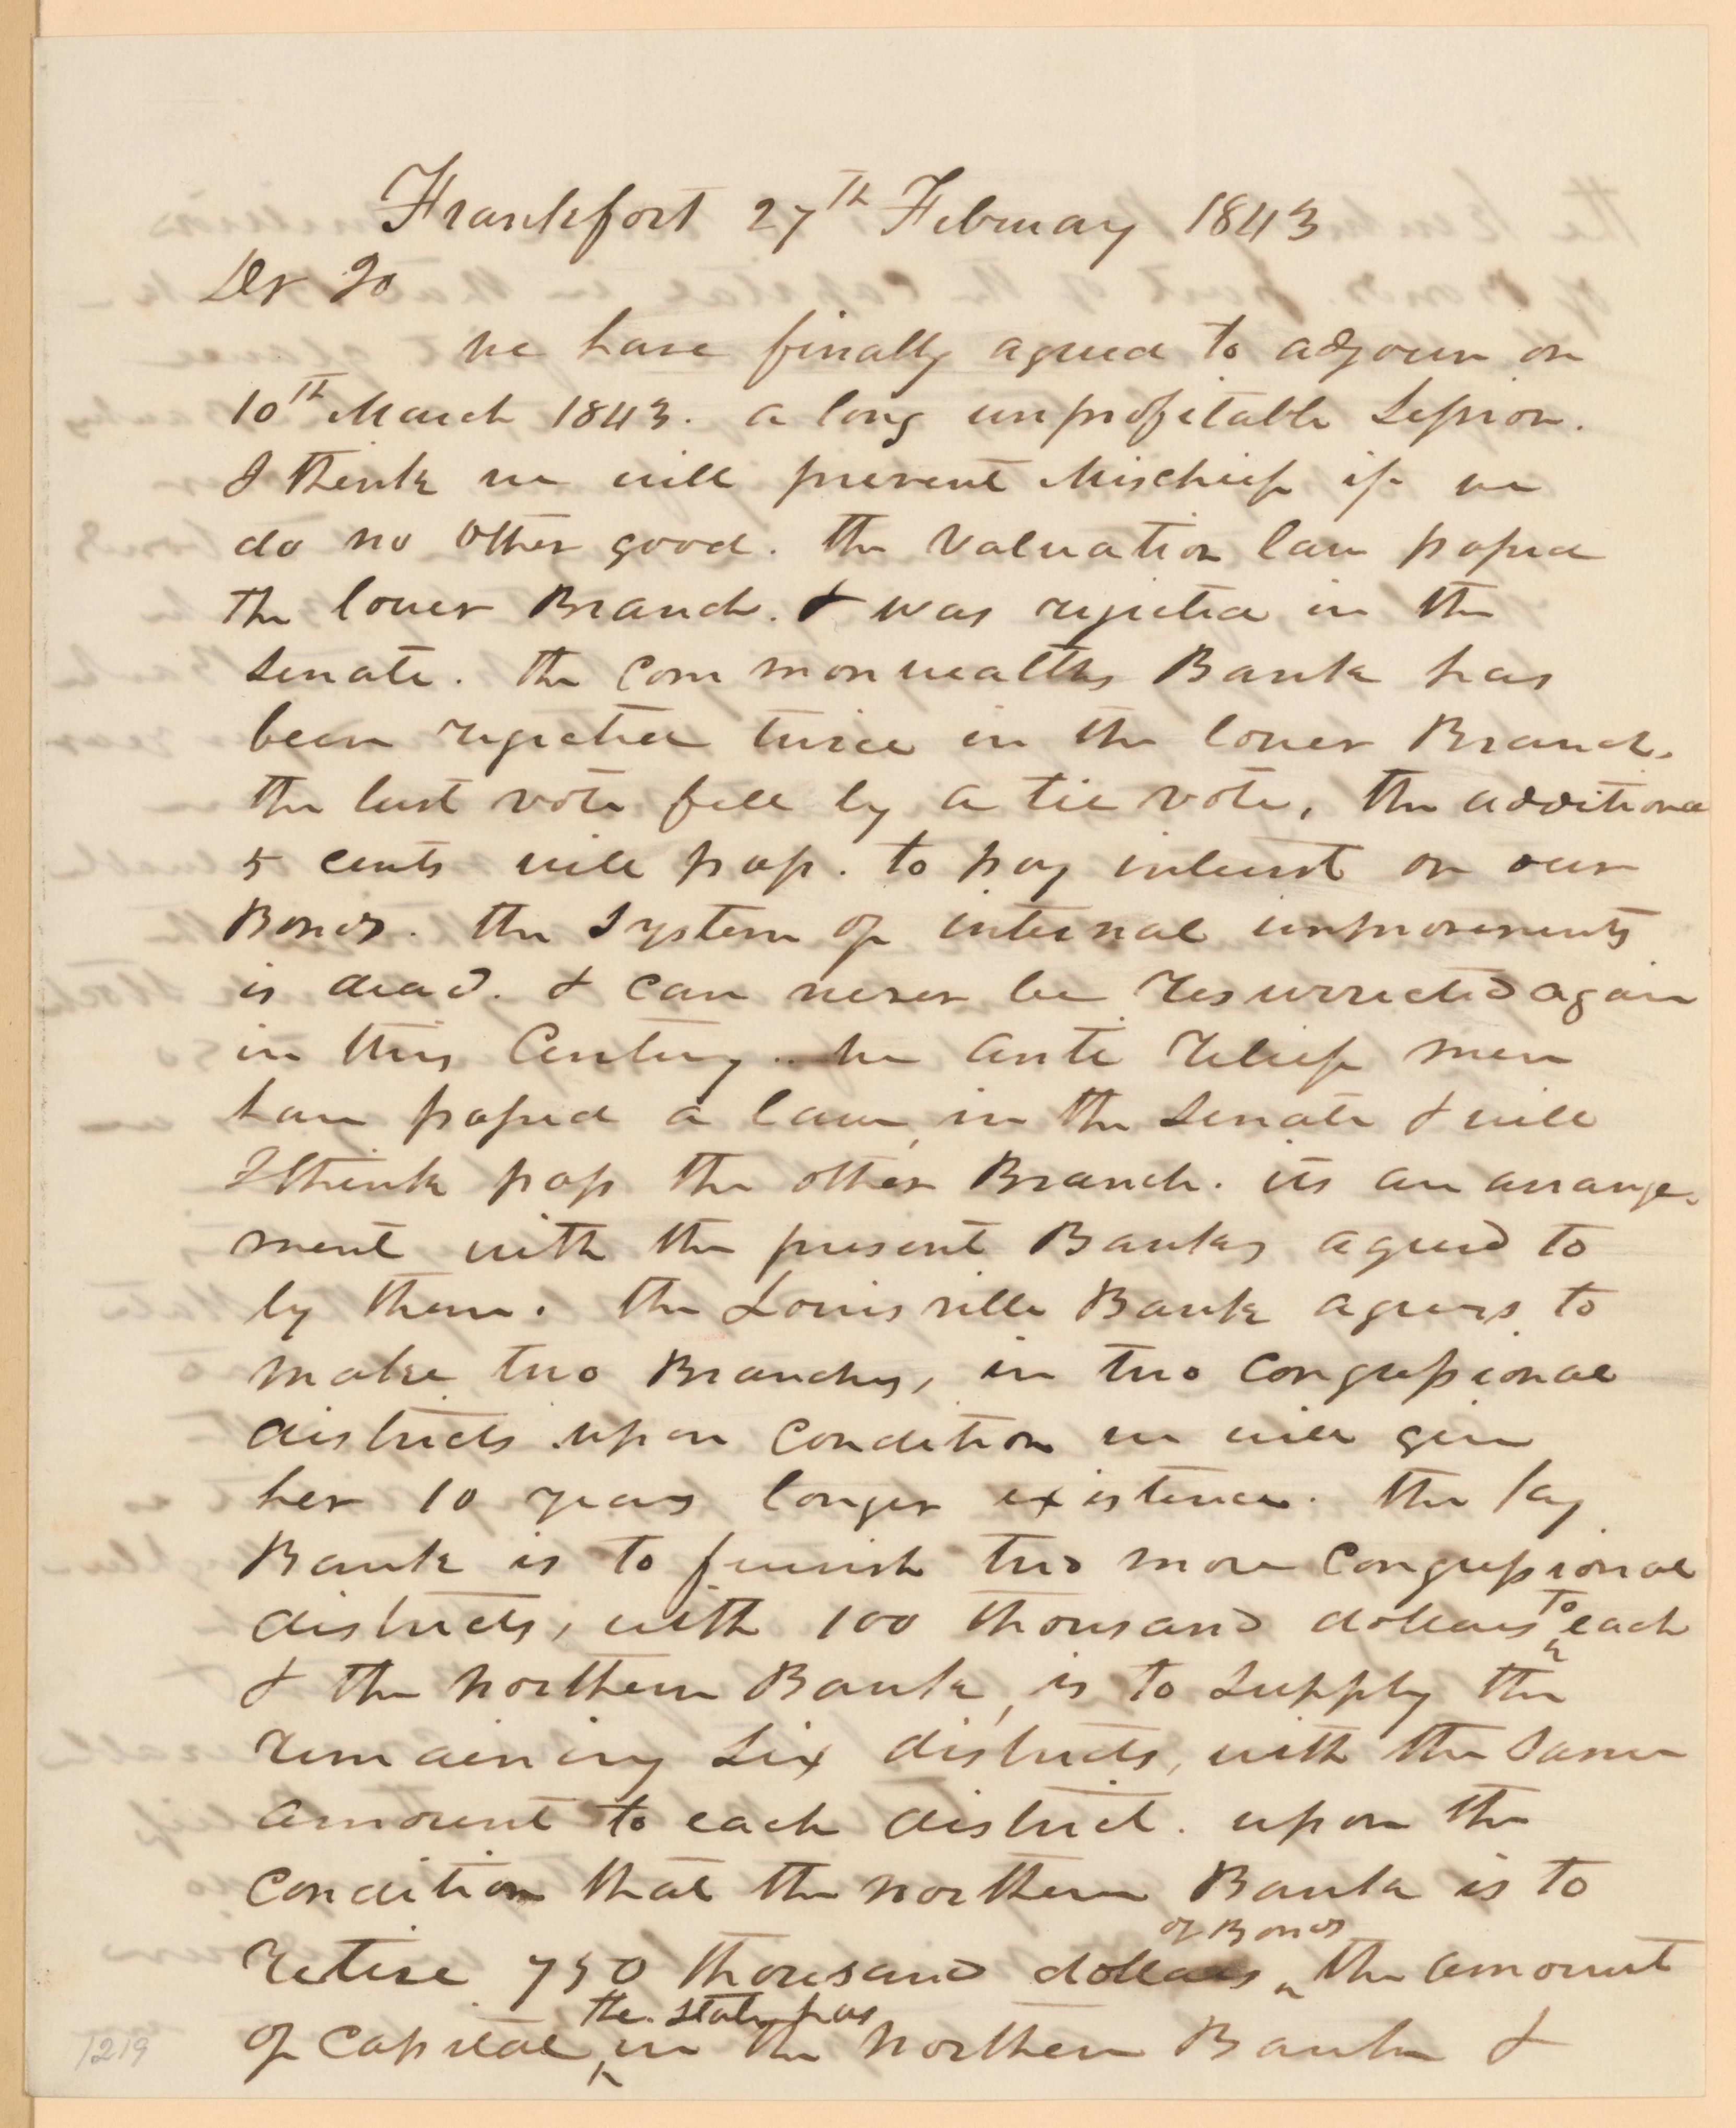 Frankfort 27th February 1843
Dr Jo
we have finally agreed to adjourn on
10th March 1843. a long unprofitable Session.
I think we will prevent Mischief if we
do no other good. the Valuation law passed
the lower Branch. & was rejected in the
Senate. the Commonwealths Bank has
been rejected twice in the lower Branch.
the last vote fell by a tie vote, the additional
5 cents will pass. to pay interest on our
Bonds. the System of internal improvements
is dead. & can never be resurrected again
in this Century. we anti Relief men
have passed a law, in the Senate & will
I think pass the other Branch. its an arrange-
ment with the present Banks agreed to
by them. the Louisville Bank agrees to
make two Branches, in two Congressional
districts upon condition we will give
her 10 years longer existence. the Ky
Bank is to furnish two more Congressional
districts, with 100 thousand dollars to each
& the northern Bank, is to supply the
remaining Six districts, with the Same
amount to each district. upon the
Condition that the northern Bank is to
of Bonds
retire 750 thousand dollars the amount
the State has
of Capital in the Northern Bank &
1219